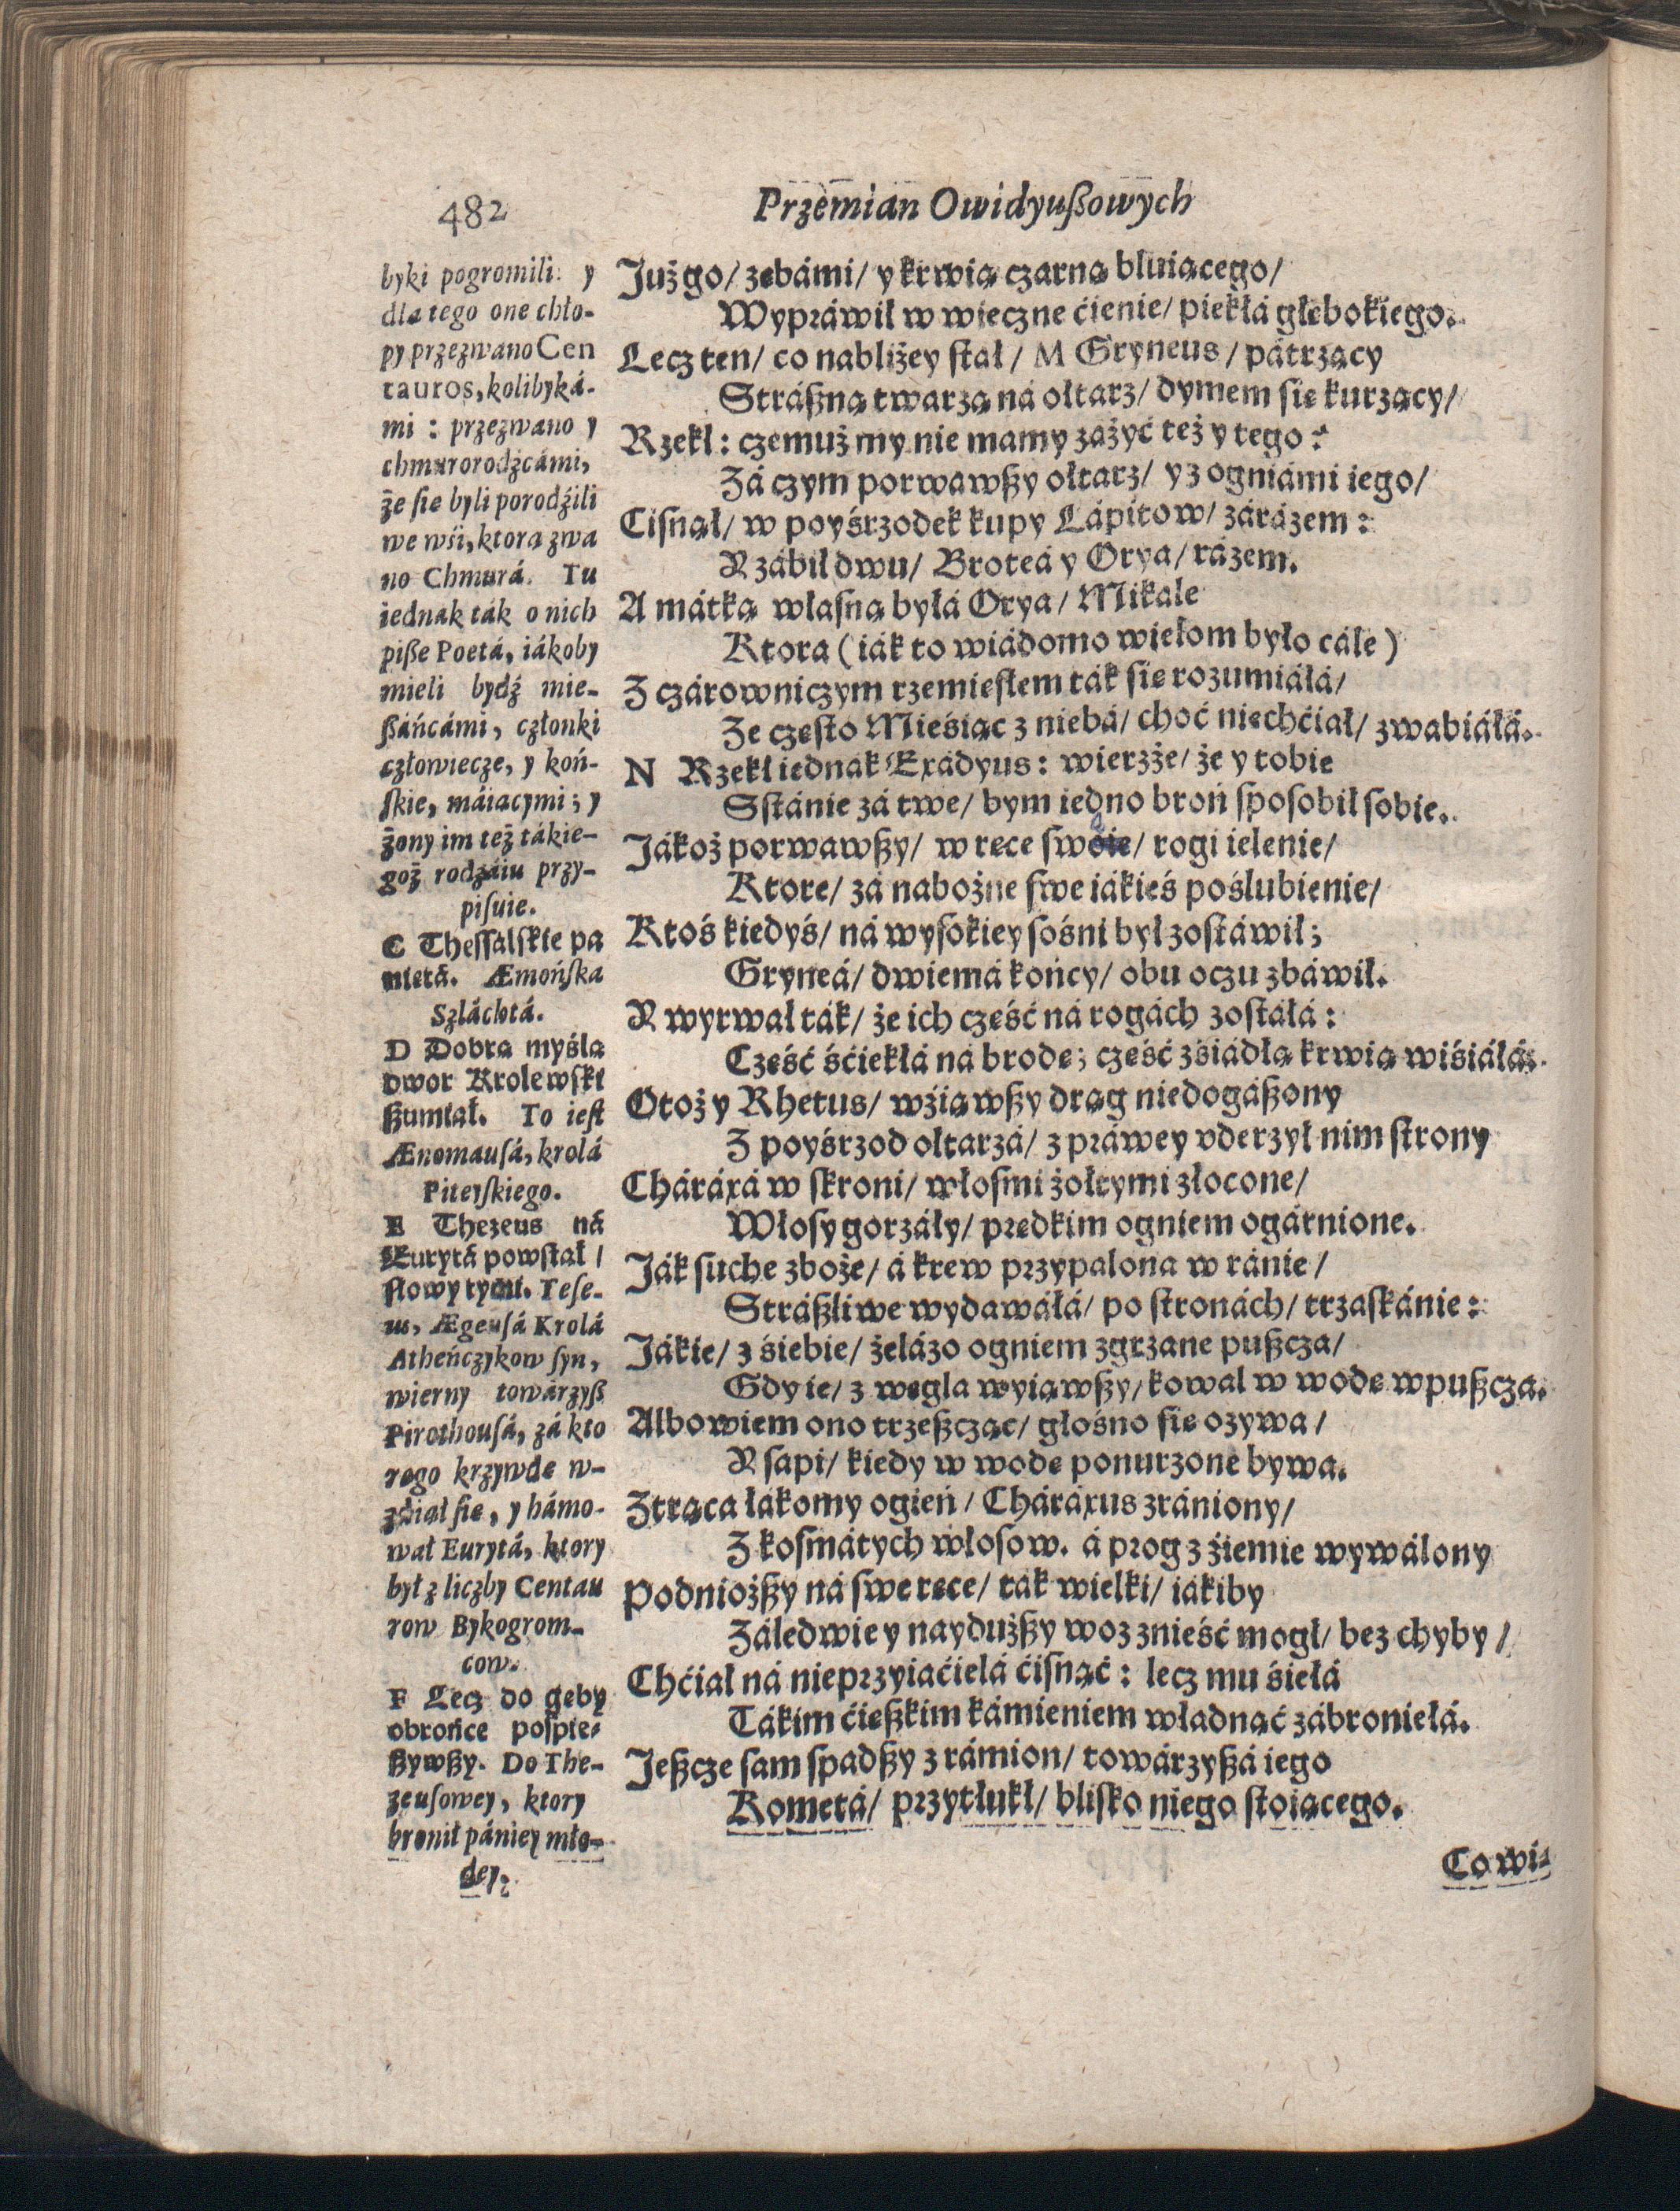 482
Przemian Owidyußowych
byki pogromili: y
dla tego one chło-
py przezwano Cen
tauros, kolibyká-
mi : przezwano y
chmurorodźcámi,
że sie byli porodźili
we wśi, ktora zwa
no Chmurá. Tu
iednak ták o nich
piße Poetá, iákoby
mieli bydź mie-
ßáńcámi, członki
człowiecze, y koń-
skie, máiacymi; y
żony im też tákie-
goż rodzáiu przy-
pisuie.
C Thessalskie pa
nietá. Æmońska
Szláchtá.
D Dobra myśla
dwor Krolewski
ßumiał. To iest
Ænomausá, krolá
Piteyskiego.
E Thezeus ná
Eurytá powstał /
słowy tymi. Tese-
us, Ægeusá Krolá
Atheńczykow syn,
wierny towárzyß
Pirothousá, zá kto
rego krzywde w-
ziął sie, y hámo-
wał Eurytá, ktory
był z liczby Centau
row Bykogrom-
cow.
F Lecz do geby
obrońce pospie-
ßywßy. Do The-
zeusowey, ktory
bronił pániey mło-
dey.
Już go/ zebámi/ y krwią czarną bluiącego/
Wypráwił w wieczne ćienie/ piekłá głebokiego.
Lecz ten/ co nabliżey stał / M Gryneus / pátrzący
Stráßną twarzą ná ołtarz/ dymem sie kurzący/
Rzekł: czemuż my nie mamy zażyć też y tego?
Zá czym porwawßy ołtarz/ y z ogniámi iego/
Cisnął/ w poyśrzodek kupy Lápitow/ zárázem:
Y zábił dwu/ Broteá y Orya/ rázem.
A mátką własną byłá Orya/ Mikale
Ktora (iák to wiádomo wielom było cále)
Z czárowniczym rzemiesłem ták sie rozumiáłá/
Ze często Mieśiąc z niebá/ choć niechćiał/ zwabiáłá.
N Rzekł iednak Exádyus: wierzże/ że y tobie
Sstánie zá twe/ bym iedno broń sposobił sobie.
Jákoż porwawßy/ w rece swoie/ rogi ielenie/
Ktore/ zá nabożne swe iákieś poślubienie/
Ktoś kiedyś/ ná wysokiey sośni był zostáwił;
Gryneá/ dwiemá końcy/ obu oczu zbáwił.
Y wyrwał ták/ że ich cześć ná rogách zostáłá:
Cześć śćiekłá ná brode; cześć zsiádłą krwią wiśiáłá.
Otoż y Rhetus/ wźiąwßy drąg niedogáßony
Z poyśrzod ołtarzá/ z práwey vderzył nim strony
Cháráxá w skroni/ włosmi żołtymi złocone/
Włosy gorzáły/ predkim ogniem ogárnione.
Ják suche zboże/ á krew przypalona w ránie/
Stráßliwe wydawáłá/ po stronách/ trzaskánie:
Jákie/ z śiebie/ żelázo ogniem zgrzane pußcza/
Gdy ie/ z wegla wyiąwßy/ kowal w wode wpußcza.
Albowiem ono trzeßcząc/ głośno sie ozywa /
Y sapi/ kiedy w wode ponurzone bywa.
Ztrąca łákomy ogień / Cháráxus zrániony/
Z kosmátych włosow. á prog z źiemie wywálony
Podniożßy ná swe rece/ ták wielki/ iákiby
Záledwie y naydużßy woz znieść mogł/ bez chyby /
Chćiał ná nieprzyiaćielá ćisnąć: lecz mu śiełá
Tákim ćießkim kámieniem władnąć zábroniełá.
Jeßcze sam spadßy z rámion/ towárzyßá iego
Kometá/ przytłukł/ blisko niego stoiącego.
Co wi-